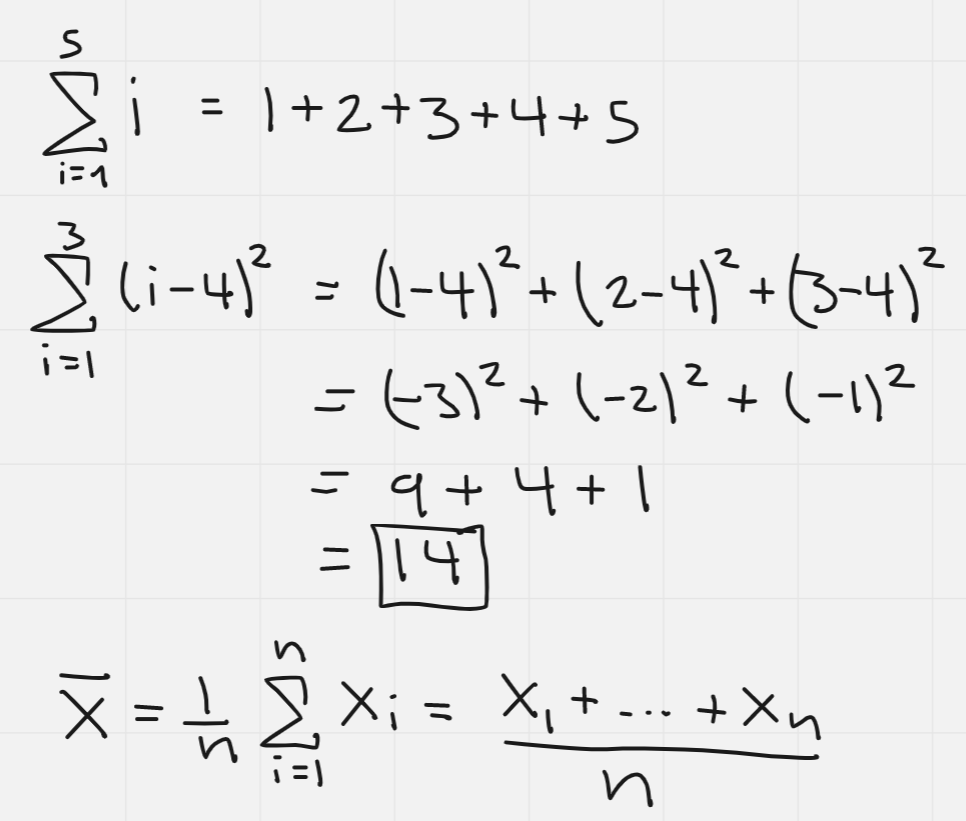 $\sum_{i=1}^{5} i = 1+2+3+4+5$
$\sum_{i=1}^{3} (i-4)^2 = (1-4)^2 + (2-4)^2 + (3-4)^2$
$= (-3)^2 + (-2)^2 + (-1)^2$
$= 9 + 4 + 1$
$= \boxed{14}$
$\overline{X} = \frac{1}{n} \sum_{i=1}^{n} X_i = \frac{X_1 + \cdots + X_n}{n}$